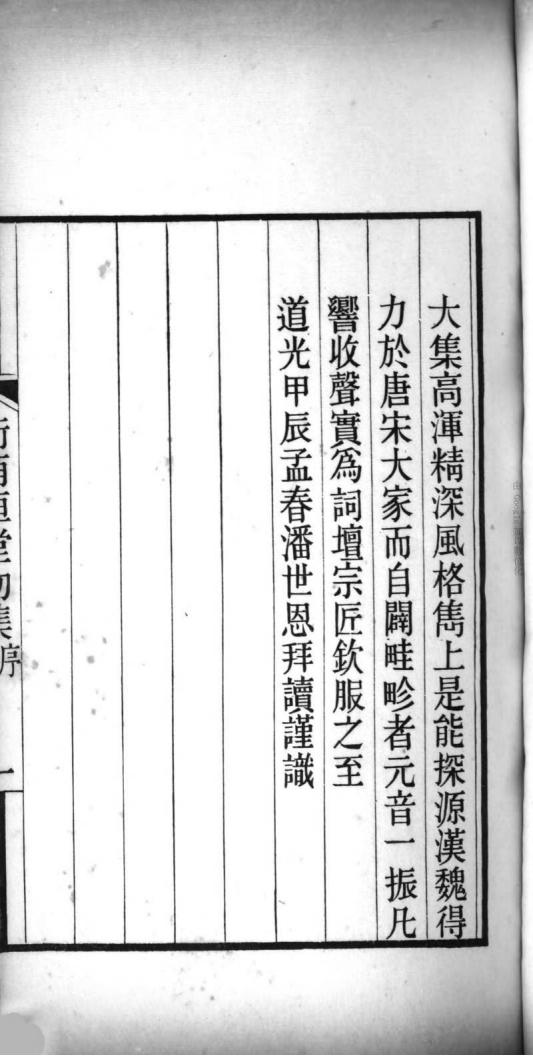 大集高渾精深風格雋上是能探源漢魏得
力於唐宋大家而自闢畦畛者元音一振凡
響收聲實爲詞壇宗匠欽服之至
道光甲辰孟春潘世恩拜讀謹識
序
一